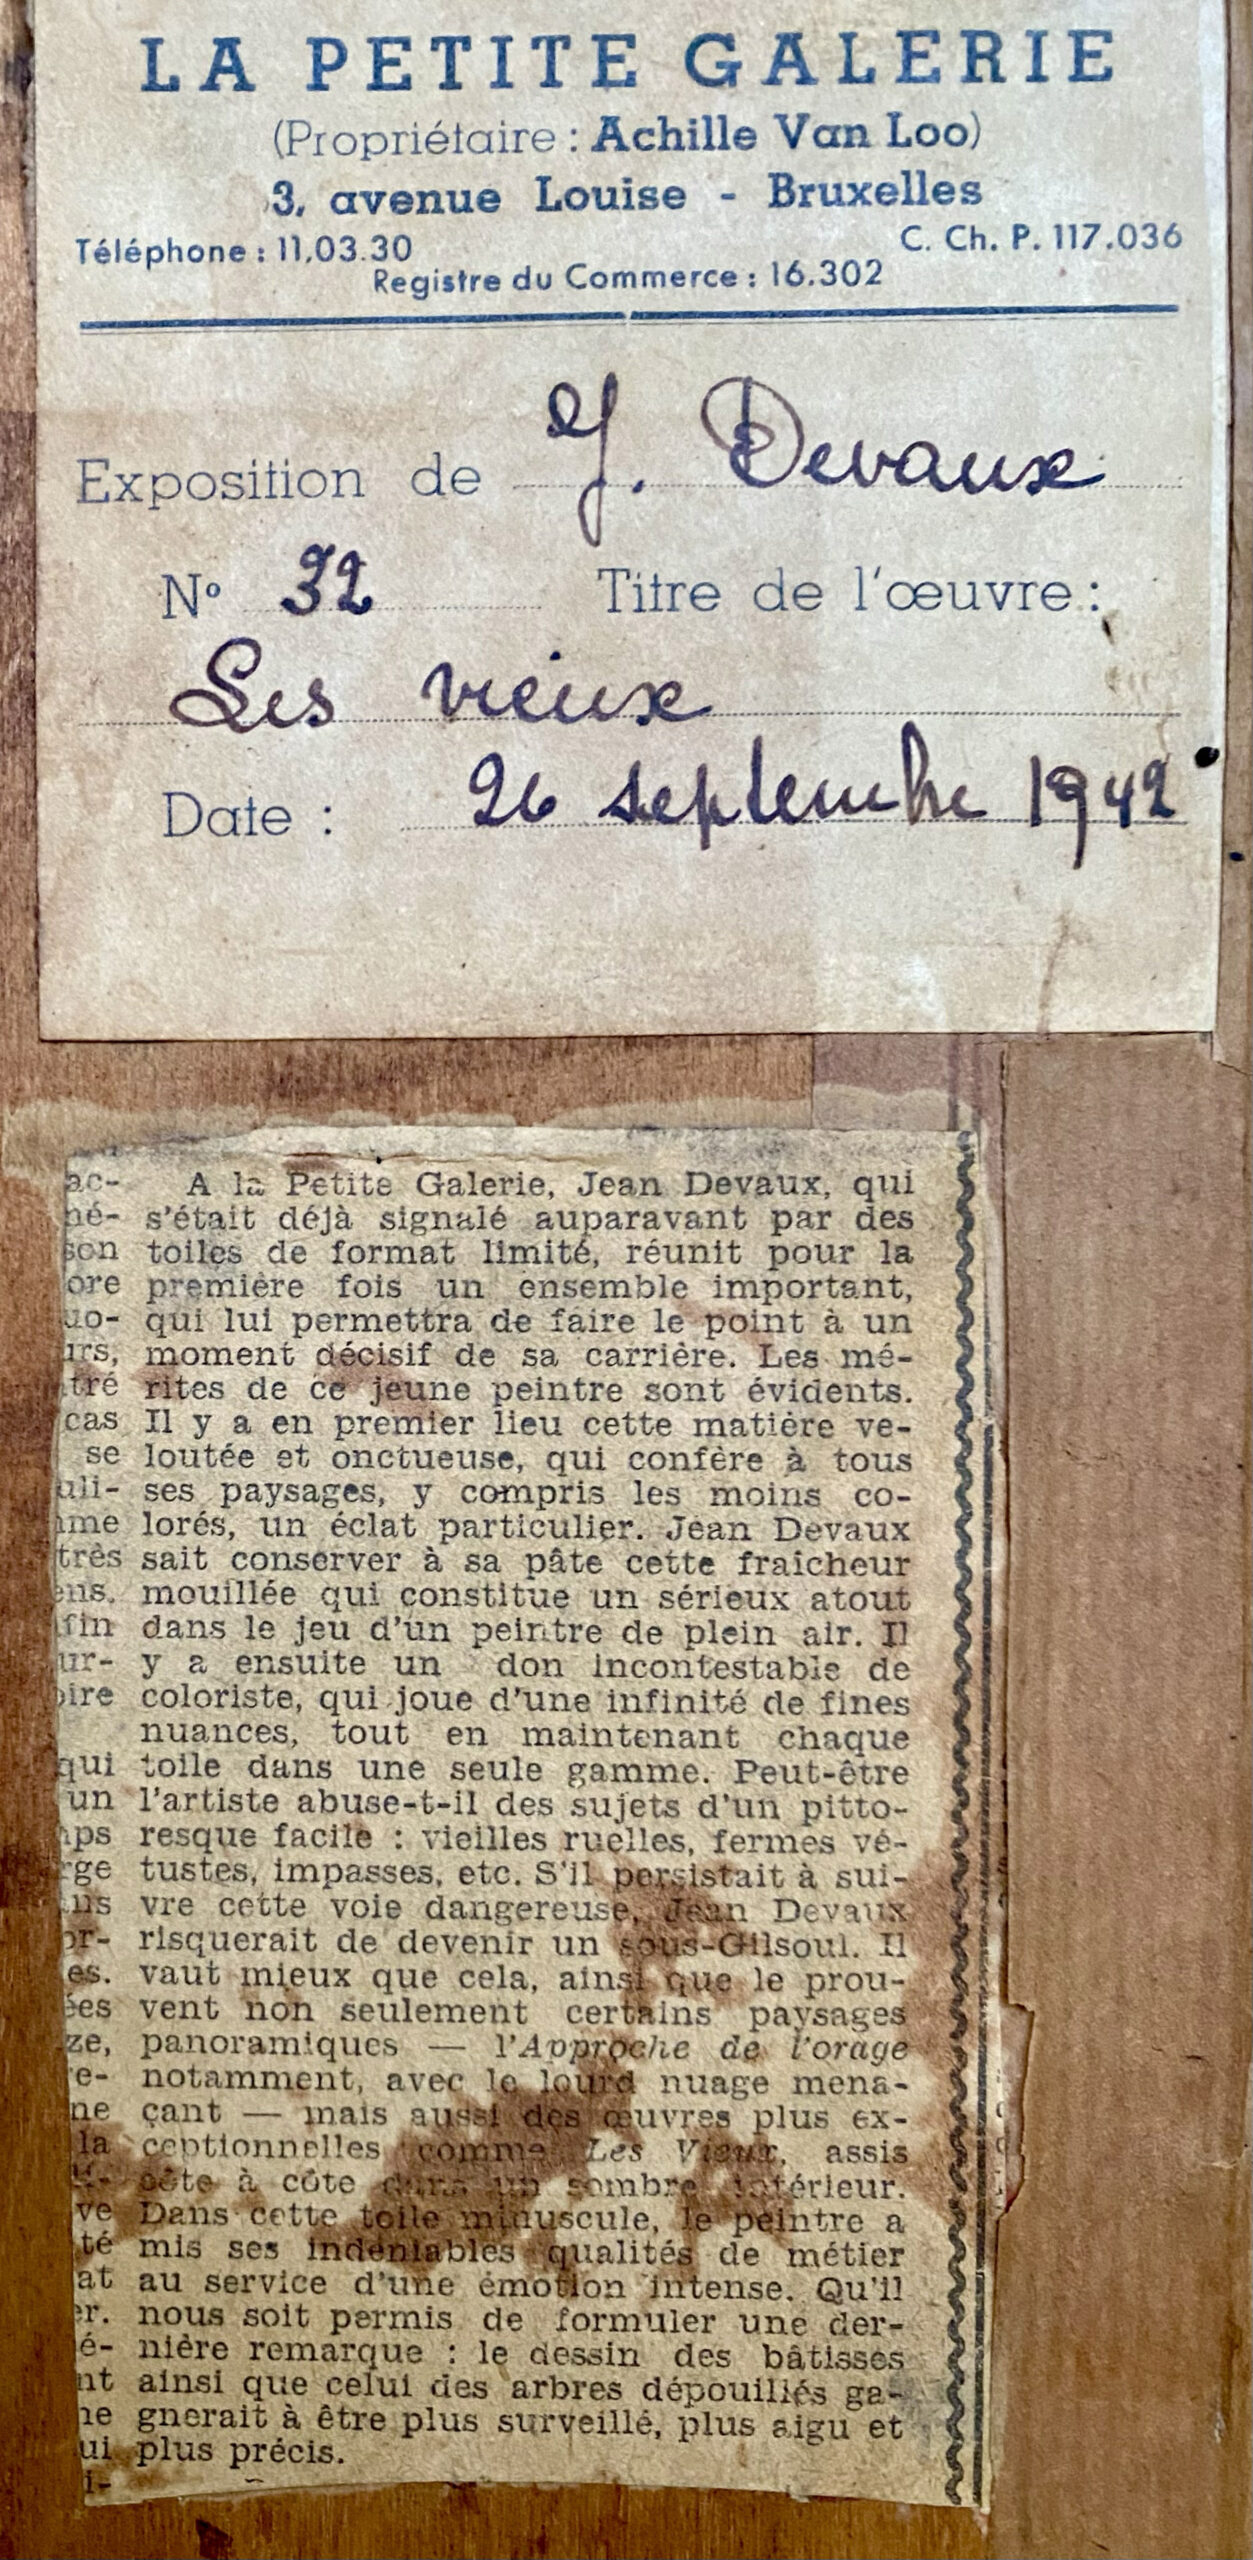 LA PETITE GALERIE
(Propriétaire : Achille Van Loo)
3, avenue Louise - Bruxelles
Téléphone : 11.03.30
C. Ch. P. 117.036
Registre du Commerce : 16.302
Exposition de J. Devaux
N° 32 Titre de l'œuvre :
Les vieux
Date : 26 septembre 1942
ac- A la Petite Galerie, Jean Devaux, qui
né- s'était déjà signalé auparavant par des
son toiles de format limité, réunit pour la
ore première fois un ensemble important,
uo- qui lui permettra de faire le point à un
urs, moment décisif de sa carrière. Les mé-
tré rites de ce jeune peintre sont évidents.
cas Il y a en premier lieu cette matière ve-
se loutée et onctueuse, qui confère à tous
uli- ses paysages, y compris les moins co-
me lorés, un éclat particulier. Jean Devaux
très sait conserver à sa pâte cette fraicheur
ens. mouillée qui constitue un sérieux atout
fin dans le jeu d'un peintre de plein air. Il
ur- y a ensuite un don incontestable de
oire coloriste, qui joue d'une infinité de fines
nuances, tout en maintenant chaque
qui toile dans une seule gamme. Peut-être
un l'artiste abuse-t-il des sujets d'un pitto-
ps resque facile : vieilles ruelles, fermes vé-
rge tustes, impasses, etc. S'il persistait à sui-
ns vre cette voie dangereuse, Jean Devaux
or- risquerait de devenir un sous-Gilsoul. Il
es. vaut mieux que cela, ainsi que le prou-
ées vent non seulement certains paysages
ze, panoramiques — l'Approche de l'orage
e- notamment, avec le lourd nuage mena-
ne çant — mais aussi des œuvres plus ex-
la ceptionnelles comme Les Vieux, assis
côte à côte dans un sombre intérieur.
ve Dans cette toile minuscule, le peintre a
té mis ses indéniables qualités de métier
at au service d'une émotion intense. Qu'il
er. nous soit permis de formuler une der-
é- nière remarque : le dessin des bâtisses
nt ainsi que celui des arbres dépouillés ga-
ne gnerait à être plus surveillé, plus aigu et
ui plus précis.
i-